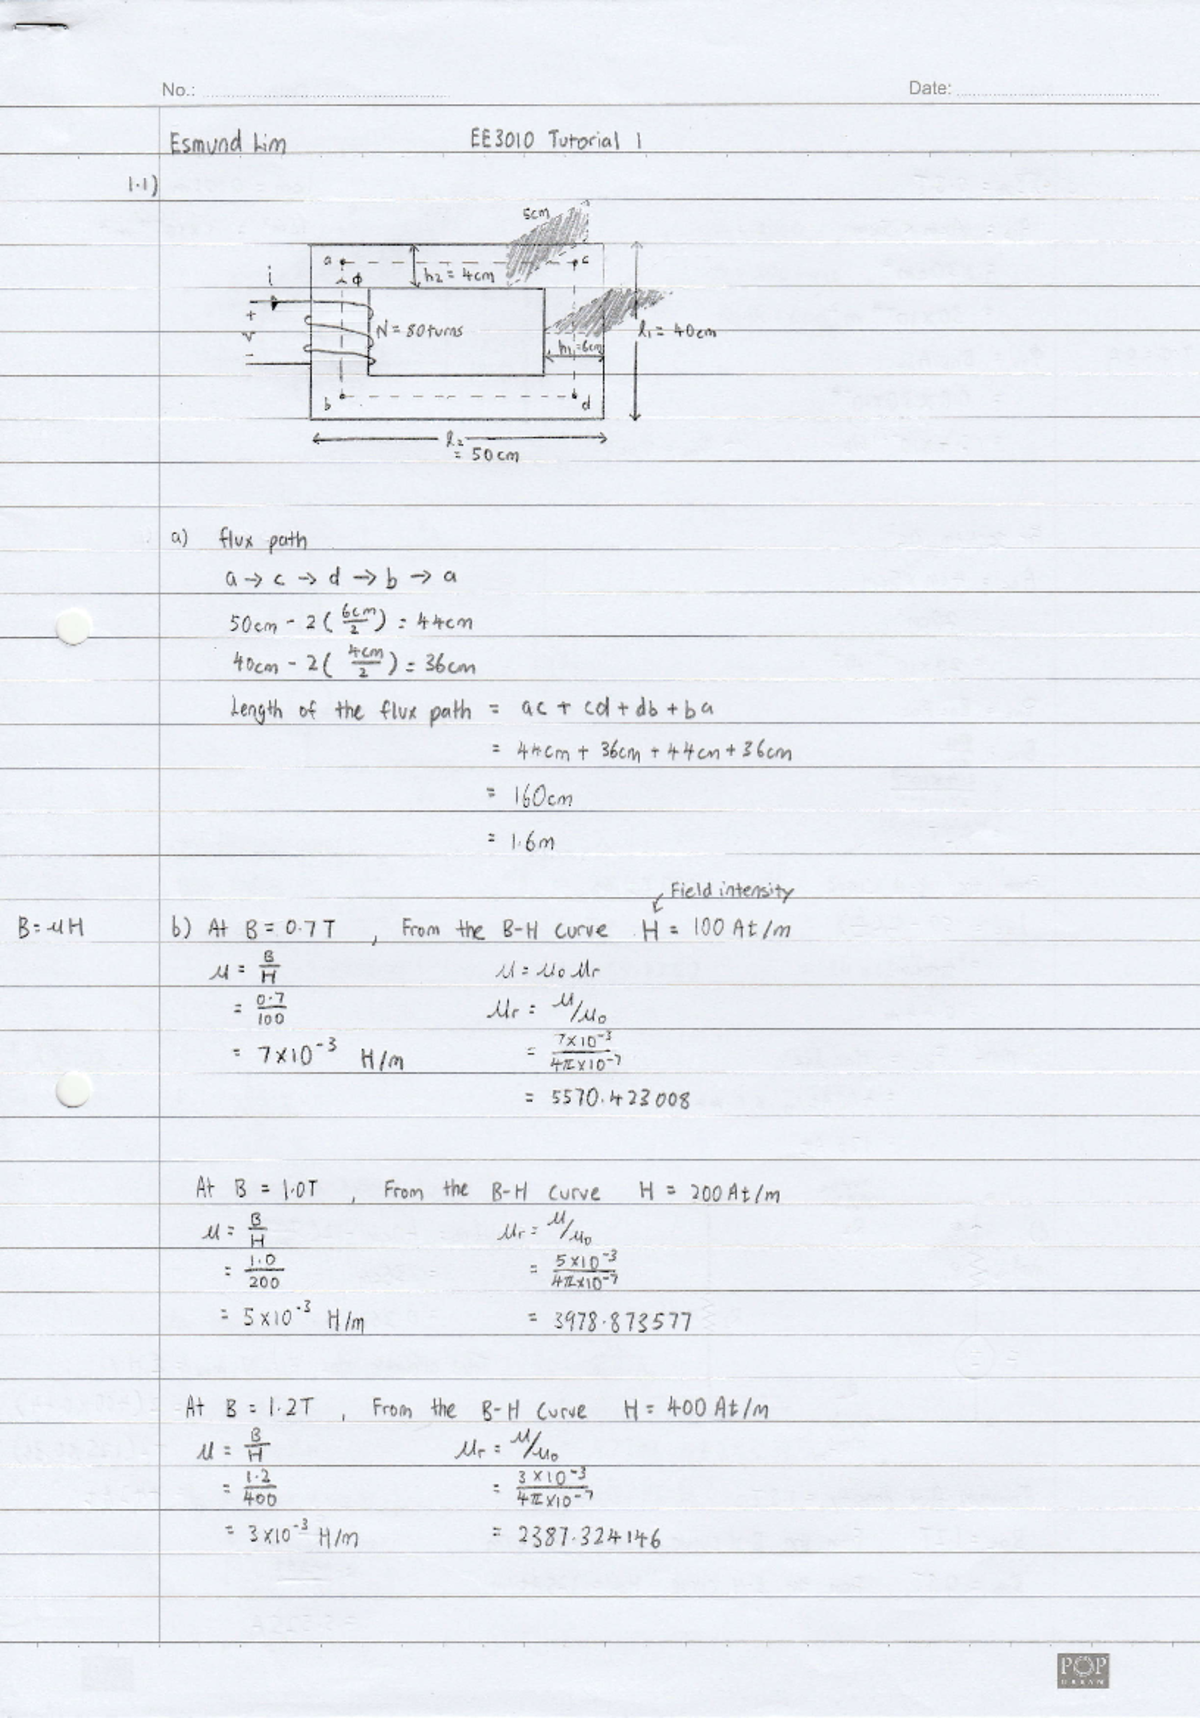 No.:
Date:
Esmund Lim EE3010 Tutorial 1
1.1)
5cm
a c
i ϕ h2 = 4cm
+
v N = 80turns l1 = 40cm
- h1=6cm
b d
l2
= 50cm
a) flux path
a → c → d → b → a
50cm - 2(6cm/2) = 44cm
40cm - 2(4cm/2) = 36cm
Length of the flux path = ac + cd + db + ba
= 44cm + 36cm + 44cm + 36cm
= 160cm
= 1.6m
Field intensity
B=μH b) At B = 0.7T , From the B-H curve H = 100 At/m
μ = B/H μ = μ0 μr
= 0.7/100 μr = μ/μ0
= 7×10^-3 H/m = 7×10^-3/4π×10^-7
= 5570.423008
At B = 1.0T , From the B-H curve H = 200At/m
μ = B/H μr = μ/μ0
= 1.0/200 = 5×10^-3/4π×10^-7
= 5×10^-3 H/m = 3978.873577
At B = 1.2T , From the B-H curve H = 400 At/m
μ = B/H μr = μ/μ0
= 1.2/400 = 3×10^-3/4π×10^-7
= 3×10^-3 H/m = 2387.324146
POP